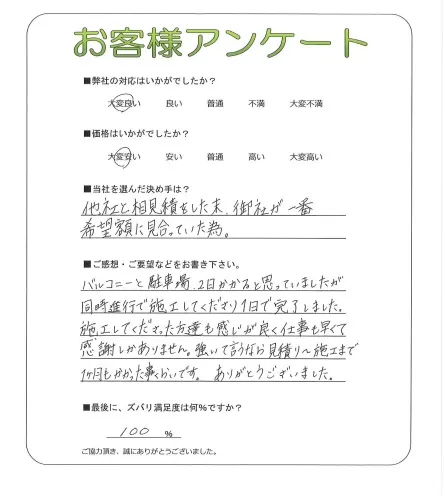 お客様アンケート
■弊社の対応はいかがでしたか?
大変良い 良い 普通 不満 大変不満
■価格はいかがでしたか?
大変安い 安い 普通 高い 大変高い
■当社を選んだ決め手は?
他社と相見積をした末、御社が一番
希望額に見合っていた為。
■ご感想・ご要望などをお書き下さい。
バルコニーと駐車場、2日かかると思っていましたが
同時進行で施工してくださり1日で完了しました。
施工してくださった方達も感じが良く仕事も早くて
感謝しかありません。強いて言うなら見積り〜施工まで
1ヶ月もかかった事くらいです。ありがとうございました。
■最後に、ズバリ満足度は何%ですか?
100 %
ご協力頂き、誠にありがとうございました。